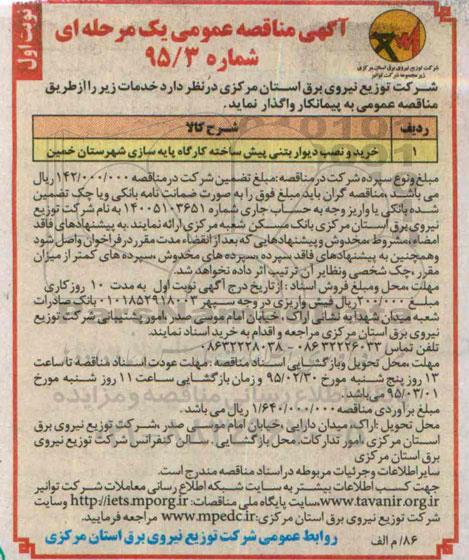 نوبت اول
آگهی مناقصه عمومی یک مرحله ای
شماره ۹۵/۳
شرکت توزیع نیروی برق استان مرکزی
زیر مجموعه شرکت توانیر
شرکت توزیع نیروی برق استان مرکزی درنظر دارد خدمات زیر را از طریق
مناقصه عمومی به پیمانکار واگذار نماید.
ردیف شرح کالا
۱ خرید و نصب دیوار بتنی پیش ساخته کارگاه پایه سازی شهرستان خمین
مبلغ ونوع سپرده شرکت در مناقصه:مبلغ تضمین شرکت در مناقصه ۱۴۲/۰۰۰/۰۰۰ ریال
می باشد. مناقصه گران باید مبلغ فوق را به صورت ضمانت نامه بانکی ویا چک تضمین
شده بانکی یا واریز وجه به حساب جاری شماره ۱۴۰۰۵۱۰۳۶۵۱ به نام شرکت توزیع
نیروی برق استان مرکزی بانک مسکن شعبه مرکزی ارائه نمایند.به پیشنهادهای فاقد
امضاء،مشروط،مخدوش وپیشنهادهایی که بعد از انقضاء مدت مقرر در فراخوان واصل شود
وهمچنین به پیشنهادهای فاقد سپرده ،سپرده های مخدوش ،سپرده های کمتر از میزان
مقرر ،چک شخصی ونظایر آن ترتیب اثر داده نخواهد شد.
مهلت ،محل ومبلغ فروش اسناد : از تاریخ درج آگهی نوبت اول به مدت ۱۰ روز کاری
مبلغ ۲۰۰/۰۰۰ ریال فیش واریزی در وجه سپهر ۰۱۰۱۸۵۲۹۱۸۰۰۳ بانک صادرات
شعبه میدان شهدا به نشانی اراک ، خیابان امام موسی صدر ،امور پشتیبانی شرکت توزیع
نیروی برق استان مرکزی مراجعه و اقدام به خرید اسناد نمایند.
تلفن تماس ۰۸۶۳۲۲۲۶۰۳۳ - ۰۸۶۳۲۲۲۸۰۳۸
مهلت ،محل تحویل وبازگشایی اسناد مناقصه : مهلت عودت اسناد مناقصه تا ساعت
۱۳ روز پنج شنبه مورخ ۹۵/۰۲/۳۰ و زمان بازگشایی ساعت ۱۱ روز شنبه مورخ
۹۵/۰۳/۰۱ می باشد.
مبلغ برآوردی مناقصه ۱/۶۴۰/۰۰۰/۰۰۰ ریال می باشد.
محل تحویل :اراک، میدان دارایی ،خیابان امام موسی صدر ،شرکت توزیع نیروی برق
استان مرکزی ،امور تدارکات. محل بازگشایی: سالن کنفرانس شرکت توزیع نیروی
برق استان مرکزی
سایر اطلاعات وجزئیات مربوطه در اسناد مناقصه مندرج است.
جهت کسب اطلاعات بیشتر به سایت شبکه اطلاع رسانی معاملات شرکت توانیر
www.tavanir.org.ir،سایت پایگاه ملی مناقصات: http://iets.mporg.ir وسایت
شرکت توزیع نیروی برق استان مرکزی:www.mpedc.ir مراجعه فرمایید.
۸۶/ م الف روابط عمومی شرکت توزیع نیروی برق استان مرکزی